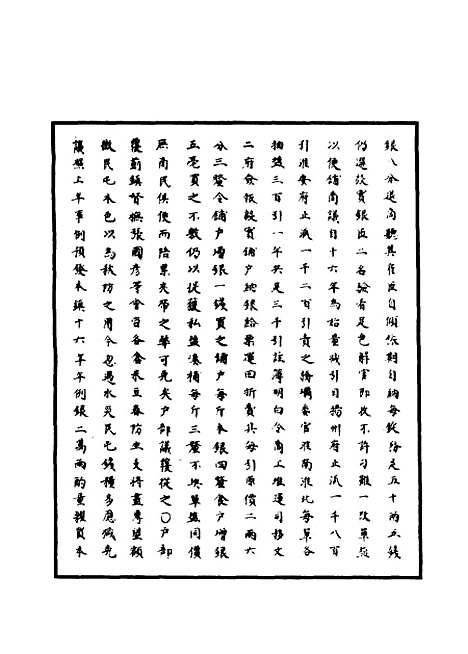 銀八分選商聽其在逐自傾依期自納每錠務足五十兩五錢
仍選殷實銀匠二名驗看足色解官即收不許刁難一改單
以便鋪商議自十六年為始量減引目揚州府止派一千八百
引淮安府止派一千二百引責之
委官淮南淮北每單各
抽鹽三百引一年共足三千引註簿明白令商工堆運司移文
二府僉報殷實鋪戶納銀給票運回折賣其每引原價二兩六
分三釐令鋪戶增銀一錢買之鋪戶每斤本銀四釐食戶增銀
五毫買之不數仍以從獲私鹽湊補每斤三釐不與單鹽同價
庶商民俱便而陪累夾帶之弊可免矣戶部議覆從之○戶部
覆薊鎮督撫張國彥等會
各倉米豆春防主支將盡專望額
徵民屯本色以為秋防之用今忽遇水災民屯錢種多應減免
議照上年事例預發本鎮十六年年例銀二萬兩酌量糴買本